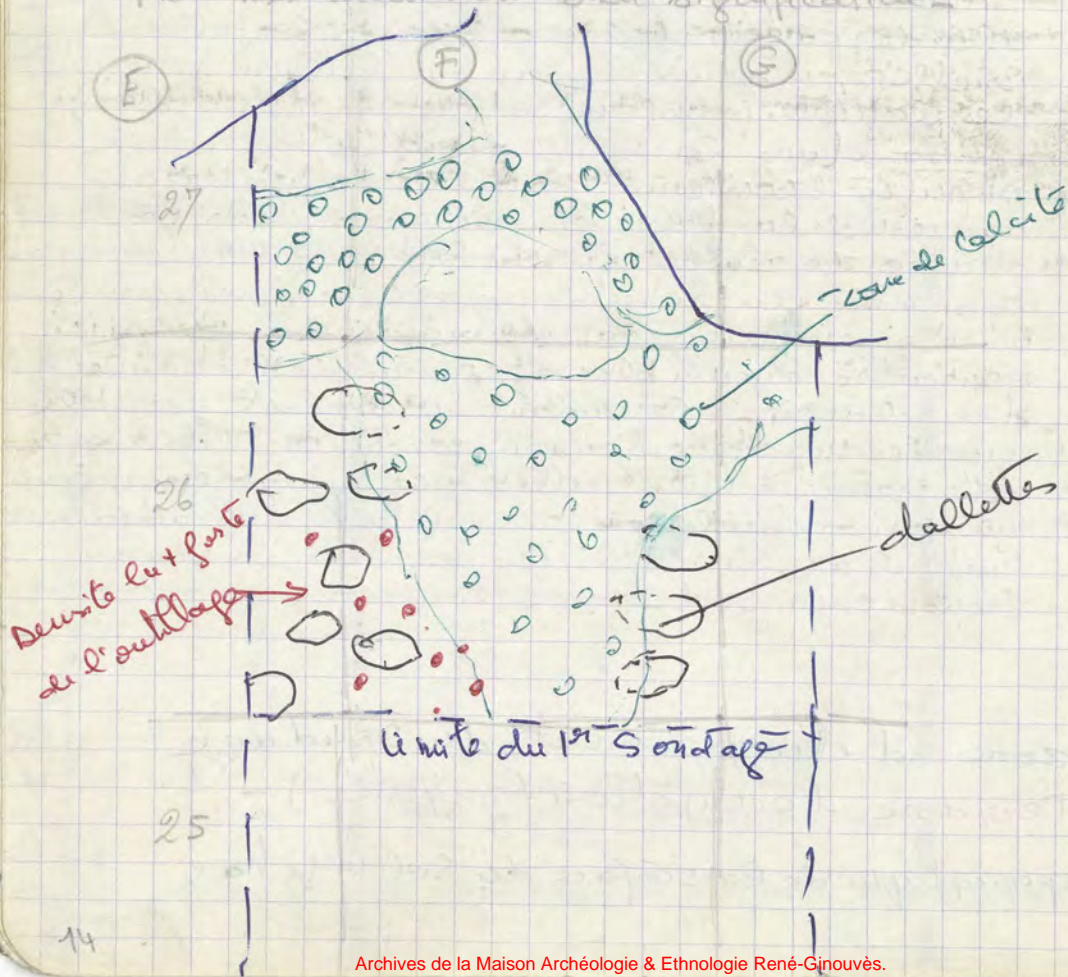 E
F
G
27
zone de calcite
26
dallettes
Densité la + forte
de l'outillage
limite du 1er Sondage
25
14
Archives de la Maison Archéologie & Ethnologie René-Ginouvès.